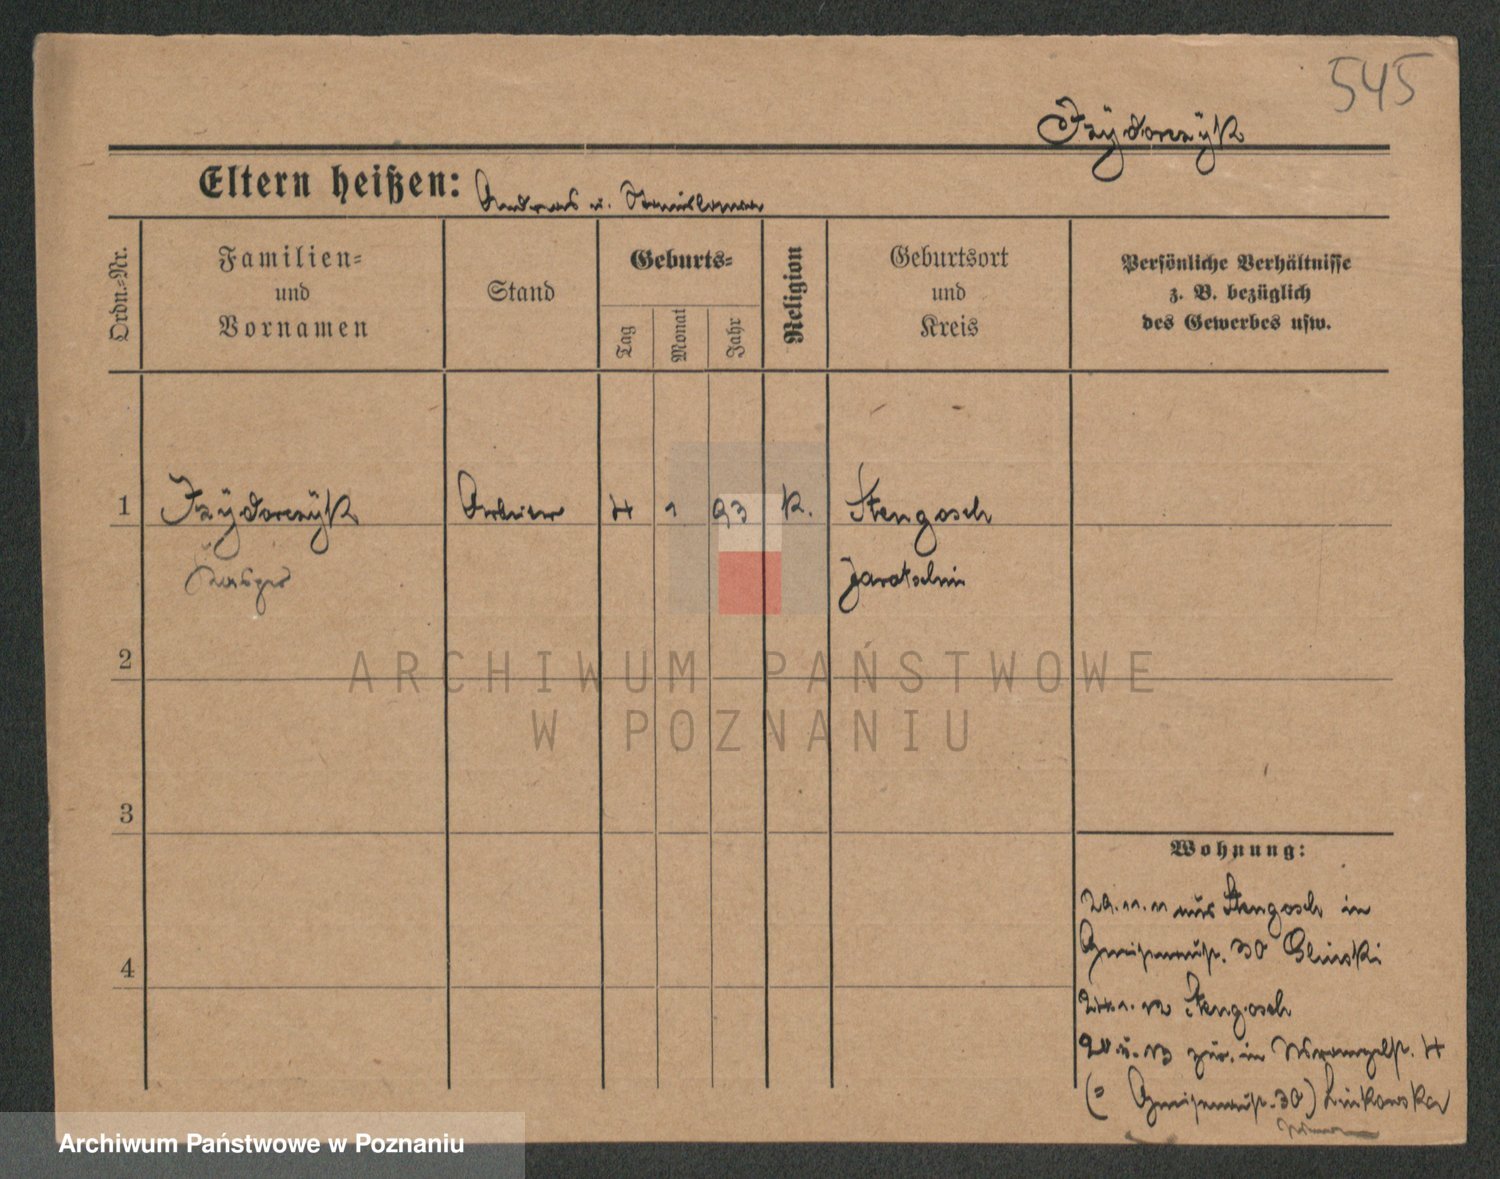 545
Izÿdorczÿk
Eltern heißen: Andreas u. Stanislawa
Ordn.=Nr.
Familien=
und
Vornamen
Stand
Geburts=
Tag
Monat
Jahr
Religion
Geburtsort
und
Kreis
Persönliche Verhältnisse
z. B. bezüglich
des Gewerbes usw.
1 Izÿdorczÿk Arbeiter 4 1 93 K. Stengosch
Jarotschin
2
ARCHIWUM PAŃSTWOWE
W POZNANIU
3
Wohnung:
29.11.11 aus Stengosch in
Gneisenaustr. 30 Glinski
4
24.1.12 Stengosch
zur. in Wrangelstr. 4
(= Gneisenaustr. 30)
Archiwum Państwowe w Poznaniu